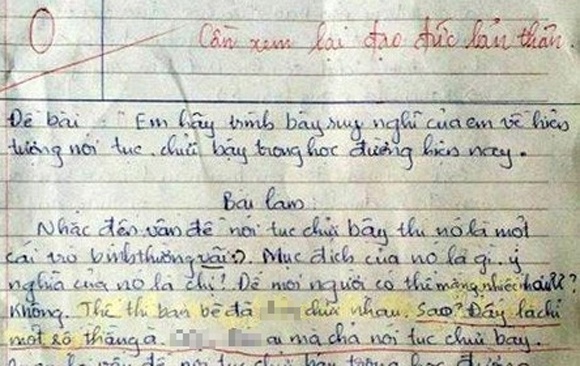 0
Cần xem lại đạo đức bản thân.
Đề bài: Em hãy trình bày suy nghĩ của em về hiện
tượng nói tục, chửi bậy trong học đường hiện nay.
Bài làm
Nhắc đến vấn đề nói tục chửi bậy thì nó là một
cái trò bình thường vãi. Mục đích của nó là gì, ý
nghĩa của nó là chi! Để mọi người có thể màng nhiếc nhau ư?
Không. Thế thì bạn bè đã chửi nhau. Sao? Đấy là chỉ
một số thằng à. ai mà chả nói tục chửi bậy.
vấn đề nói tục chửi bậy trong học đường